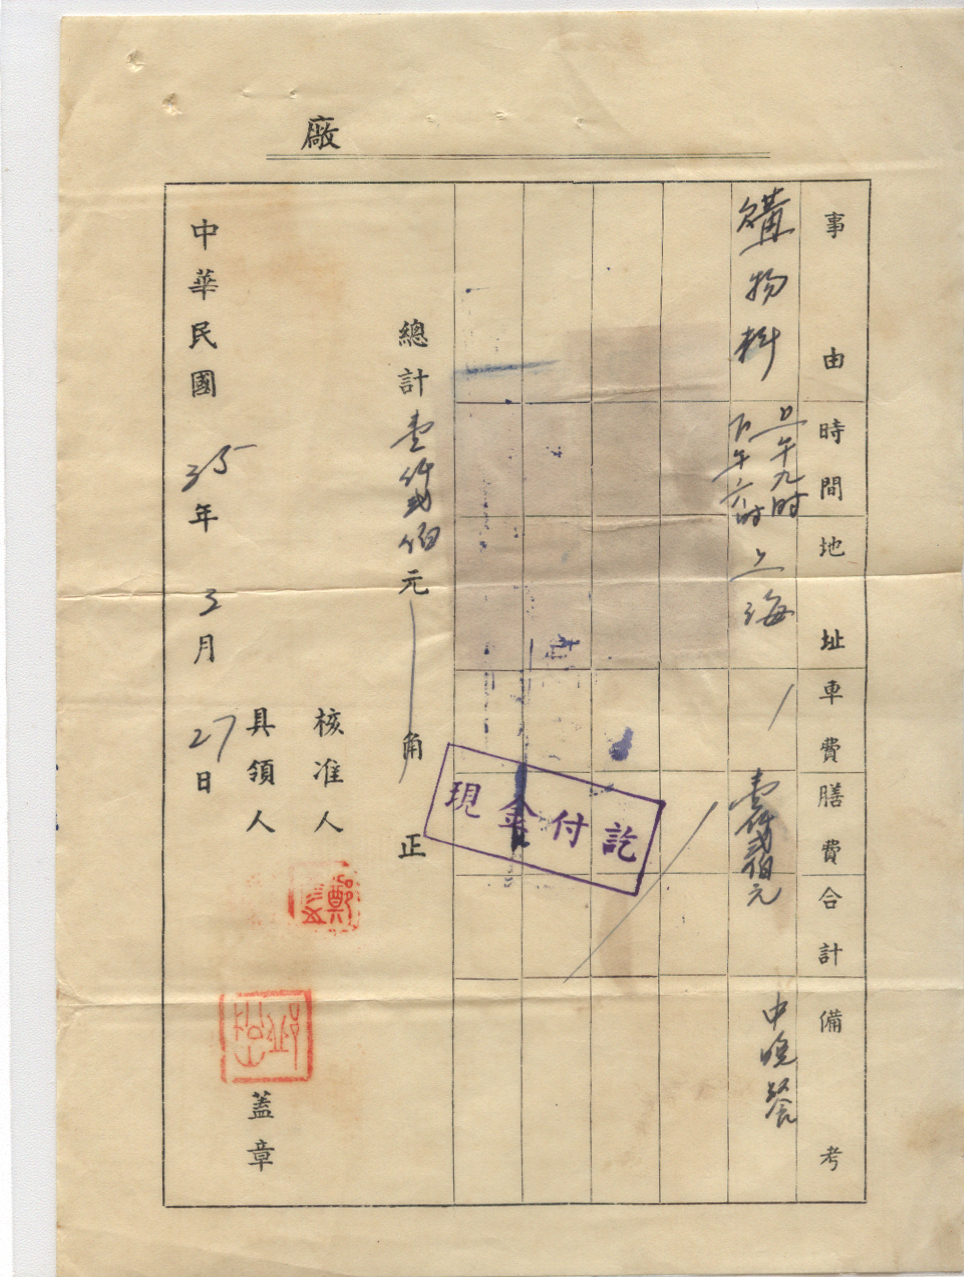 廠
事由 時間 地址 車費 膳費 合計 備考
購物料 上午九时 下午六时 上海 壹仟弍佰元 中晚餐
總計壹仟弍佰元 角正
現金付訖
核准人
鄭
具領人 蓋章
中華民國35年3月27日